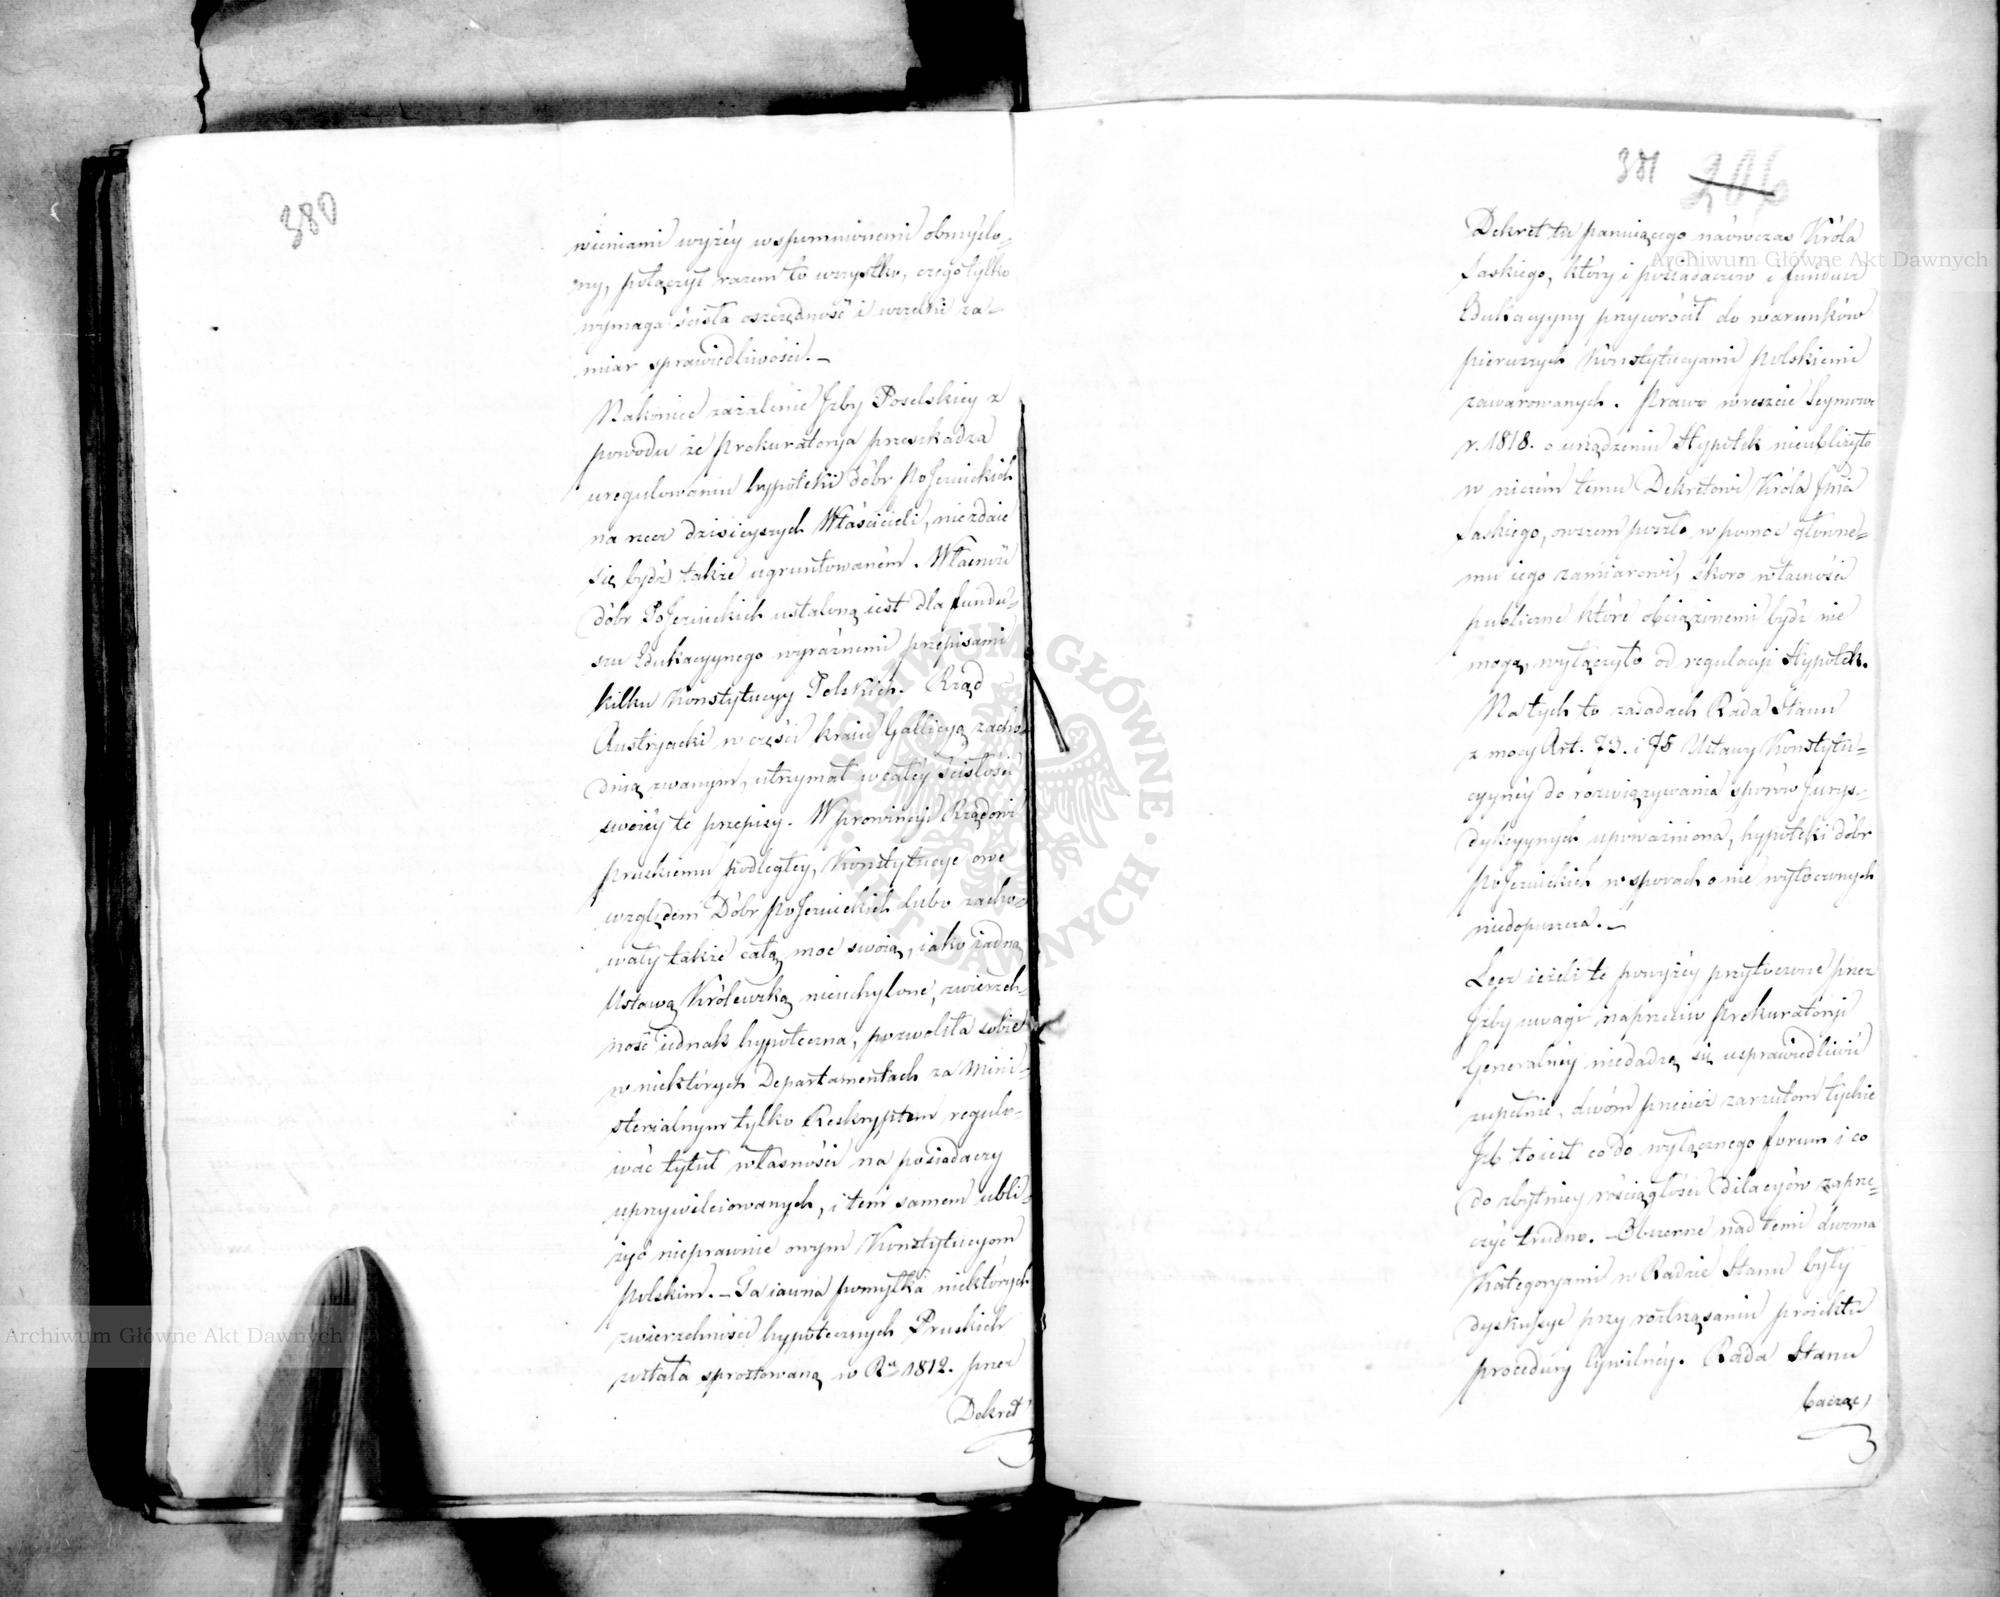 380
wieniami wyżéy wspomnionemi obmyślo-
ny, połączył razem to wszystko, czego tylko
wymaga ścisła oszczędność i wszelki za-
miar sprawiedliwości. —
Nakoniec zażalenie Jzby Poselskiey z
powodu że Prokuratorya przeszkadza
uregulowaniu hypoteki dóbr PoJezuickich
na rzecz dzisieyszych Właścicieli, niezdaie
się bydź także ugruntowaném. Własność
dóbr PoJezuickich ustaloną iest dla fundu-
szu Edukacyynego wyraźnemi przepisami
kilku Konstytucyy Polskich. Rząd
Austryacki w części kraiu Gallicyą zacho-
dnią zwanym, utrzymał w całéy ścisłości
swoiéy te przepisy. W prowincyi Rządowi
pruskiemu podległey, Konstytucye owe
względem Dóbr poJezuickich lubo zacho-
wały także całą moc swoią, iako żadną
Ustawą Królewską nieuchylone, zwierzch-
ność iednak hypoteczna, pozwoliła sobie
w niektórych Departamentach za Mini-
sterialnym tylko Reskryptem regulo-
wać tytuł własności na posiadaczy
uprzywileiowanych, i tem samem ubli-
żyć nieprawnie owym Konstytucyom
polskim. — Ta iawna pomyłka niektórych
zwierzchności hypotecznych Pruskich
została sprostowaną w Rku 1812. przez
Dekret
381 206
Dekret tu panuiącego naówczas Króla
Saskiego, który i possadaczów i fundusz
Edukacyyny przywrócił do warunków
pierwszych Konstytucyami polskiemi
zawarowanych. Prawo wreszcie Seymowe
r. 1818. o urządzeniu Hypotek nieubliżyło
w niczém temu Dekretowi Króla Jmci
Saskiego, owszem poszło w pomoc główne-
mu iego zamiarowi, skoro własności
publiczne które obciążonemi bydź nie
mogą, wyłączyło od regulacyi Hypotek.
Na tych to zasadach Rada Stanu
z mocy Art. 73. i 75 Ustawy Konstytu-
cyynéy do rozwiązywania sporów Jurys-
dykcyynych upoważniona, hypoteki dóbr
poJezuickich w sporach o nie wytoczonych
niedopuszcza. —
Lecz ieżeli te powyżéy przytoczone przez
Jzby uwagi naprzeciw Prokuratoryi
Generalnéy niedadzą się usprawiedliwić
zupełnie, dwóm przecież zarzutom tychże
Jzb to iest co do wyłącznego forum i co
do zbytniey rościągłości dilacyów zaprze-
czyć trudno. — Obszerne nad temi dwoma
Kategoryami w Radzie Stanu były
dyskussye przy roztrząsaniu proiektu
procedury Cywilnéy. Rada Stanu
bacząc
Archiwum Główne Akt Dawnych
Archiwum Główne Akt Dawnych
ARCHIWUM GŁÓWNE AKT DAWNYCH